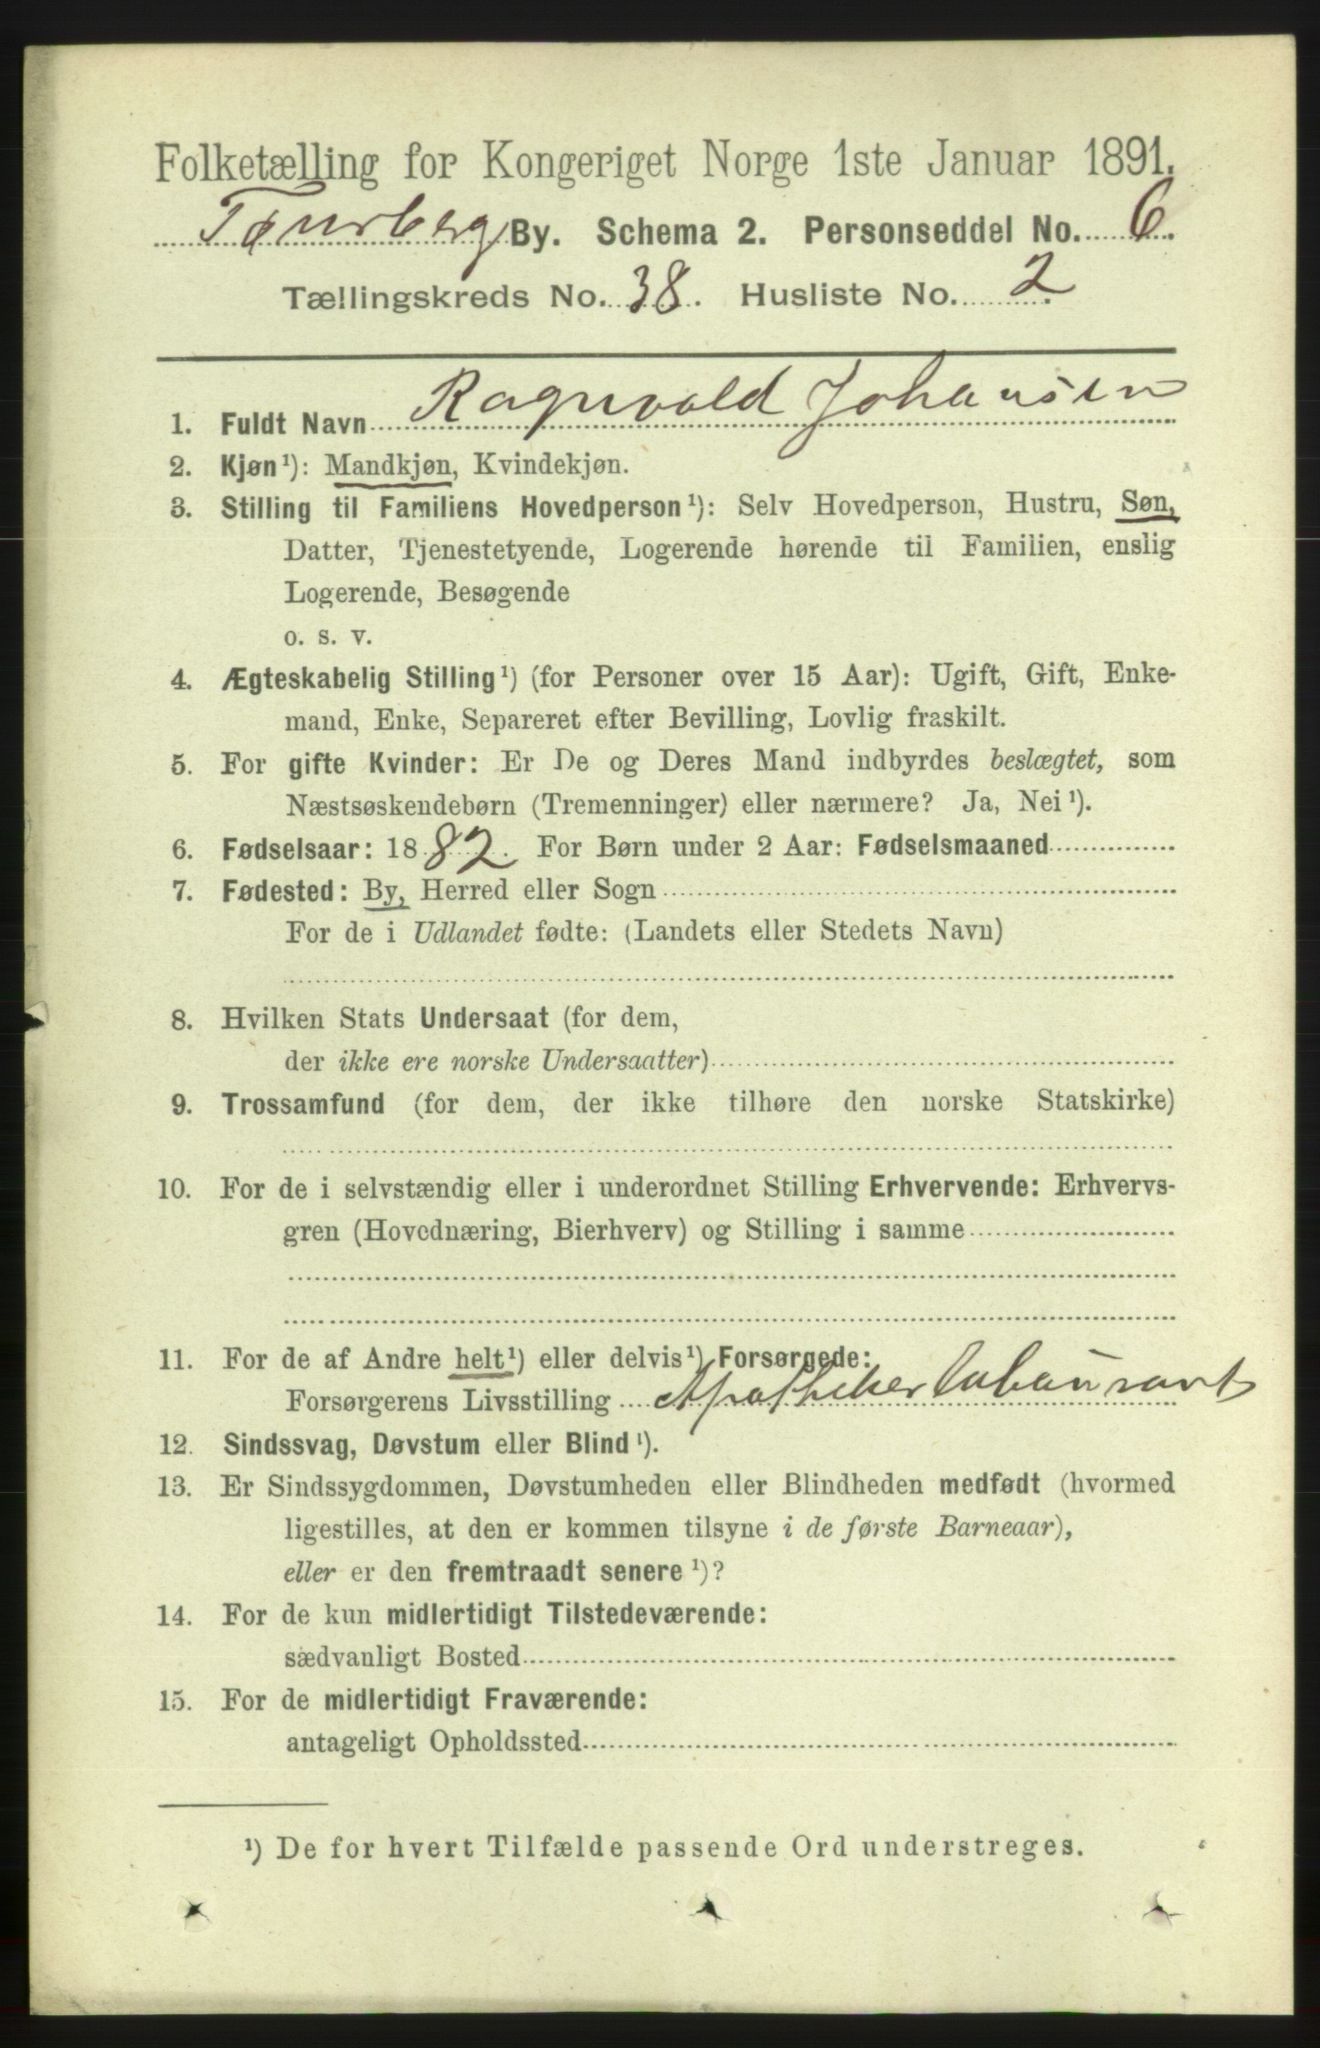 Folketælling for Kongeriget Norge 1ste Januar 1891.
Tønsberg By. Schema 2. Personseddel No. 6.
Tællingskreds No. 38. Husliste No. 2.
1. Fuldt Navn Ragnvald Johansen
2. Kjøn¹): Mandkjøn, Kvindekjøn.
3. Stilling til Familiens Hovedperson¹): Selv Hovedperson, Hustru, Søn,
Datter, Tjenestetyende, Logerende hørende til Familien, enslig
Logerende, Besøgende
o. s. v.
4. Ægteskabelig Stilling¹) (for Personer over 15 Aar): Ugift, Gift, Enke-
mand, Enke, Separeret efter Bevilling, Lovlig fraskilt.
5. For gifte Kvinder: Er De og Deres Mand indbyrdes beslægtet, som
Næstsøskendebørn (Tremenninger) eller nærmere? Ja, Nei¹).
6. Fødselsaar: 1882. For Børn under 2 Aar: Fødselsmaaned
7. Fødested: By, Herred eller Sogn
For de i Udlandet fødte: (Landets eller Stedets Navn)
8. Hvilken Stats Undersaat (for dem,
der ikke ere norske Undersaatter)
9. Trossamfund (for dem, der ikke tilhøre den norske Statskirke)
10. For de i selvstændig eller i underordnet Stilling Erhvervende: Erhvervs-
gren (Hovednæring, Bierhverv) og Stilling i samme
11. For de af Andre helt¹) eller delvis¹) Forsørgede:
Forsørgerens Livsstilling Apotheker
12. Sindssvag, Døvstum eller Blind¹).
13. Er Sindssygdommen, Døvstumheden eller Blindheden medfødt (hvormed
ligestilles, at den er kommen tilsyne i de første Barneaar),
eller er den fremtraadt senere¹)?
14. For de kun midlertidigt Tilstedeværende:
sædvanligt Bosted
15. For de midlertidigt Fraværende:
antageligt Opholdssted
¹) De for hvert Tilfælde passende Ord understreges.